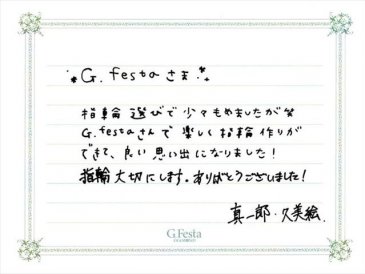 G.festaさま
指輪選びで少々もめましたが笑
G.festaさんで楽しく指輪作りが
できて、良い思い出になりました!
指輪大切にします。ありがとうございました!
真一郎・久美絵
G.Festa